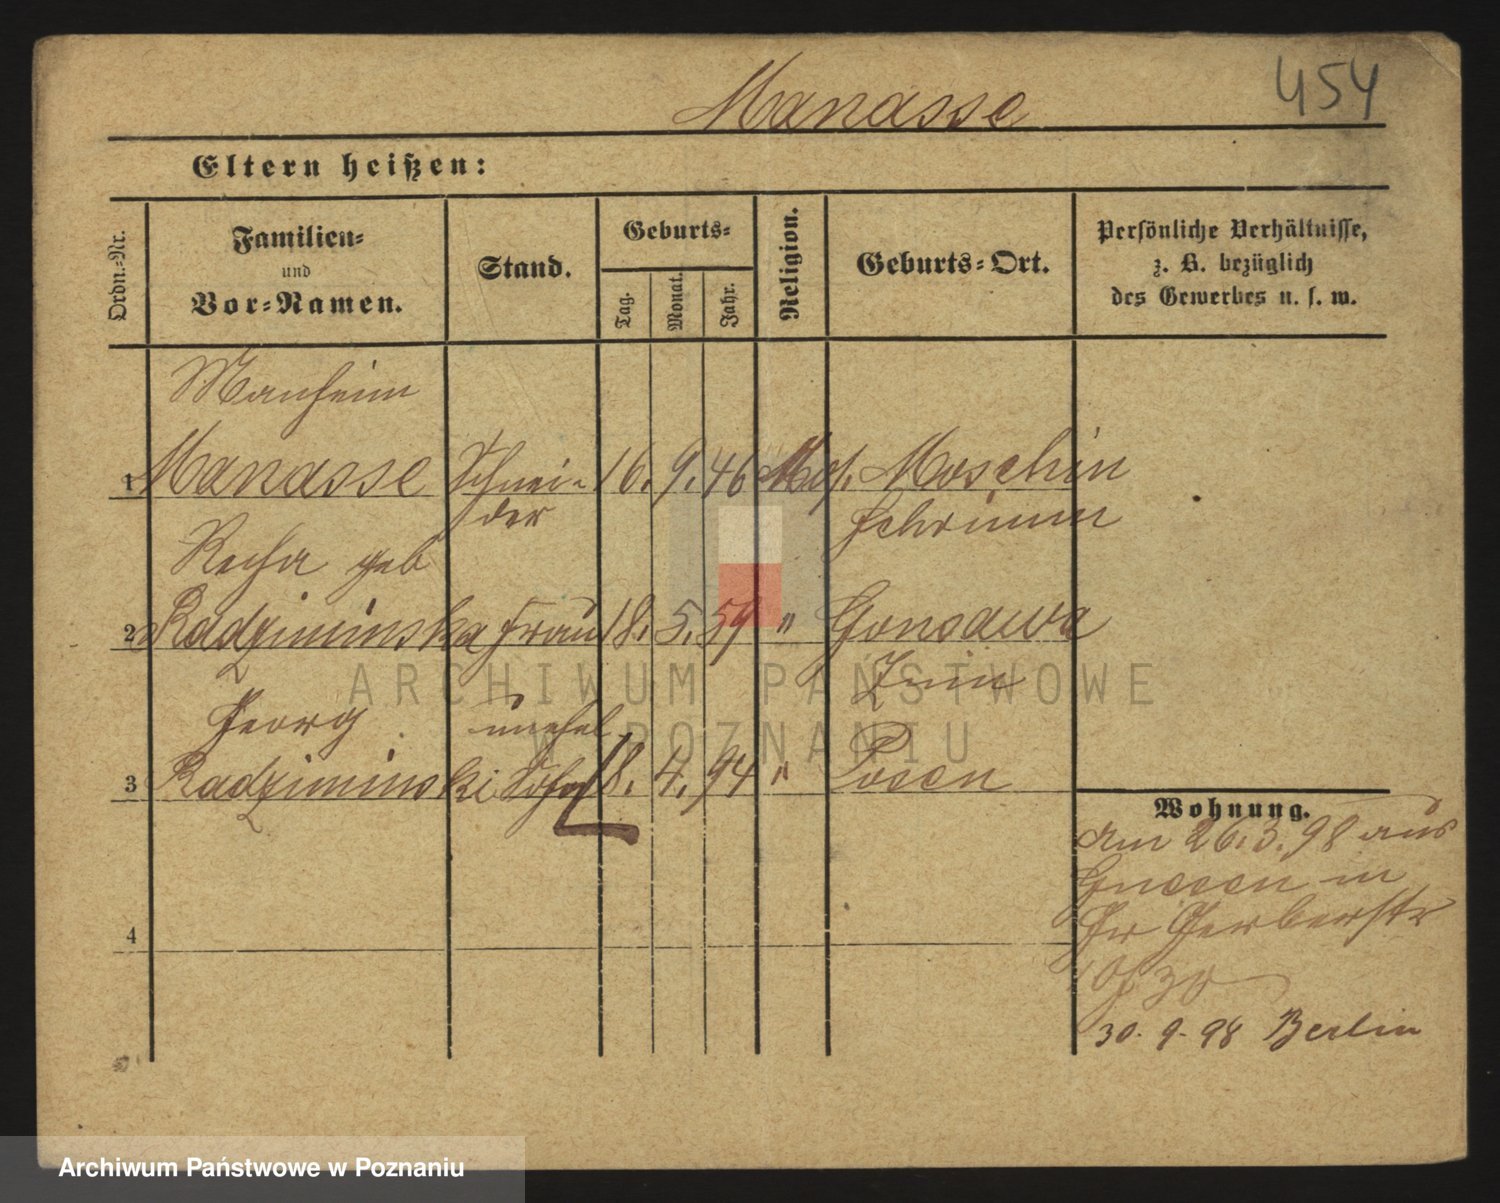 Manasse
454
Eltern heißen:
Ordn.-Nr.
Familien-
und
Vor-Namen.
Stand.
Geburts-
Tag.
Monat.
Jahr.
Religion.
Geburts-Ort.
Persönliche Verhältnisse,
z. B. bezüglich
des Gewerbes u. s. w.
Manheim
1 Manasse Schnei- 16. 9. 46 Mos. Moschin
der Schrimm
Recha geb
2 Radziminska Frau 18. 5. 59 " Gonsawa
Znin
Georg unehel
3 Radziminski Sohn 18. 4. 94 " Posen
4
Wohnung.
Am 26.3.98 aus
Gnesen in
Gr Gerberstr
30
30. 9. 98 Berlin
ARCHIWUM PAŃSTWOWE
W POZNANIU
Archiwum Państwowe w Poznaniu